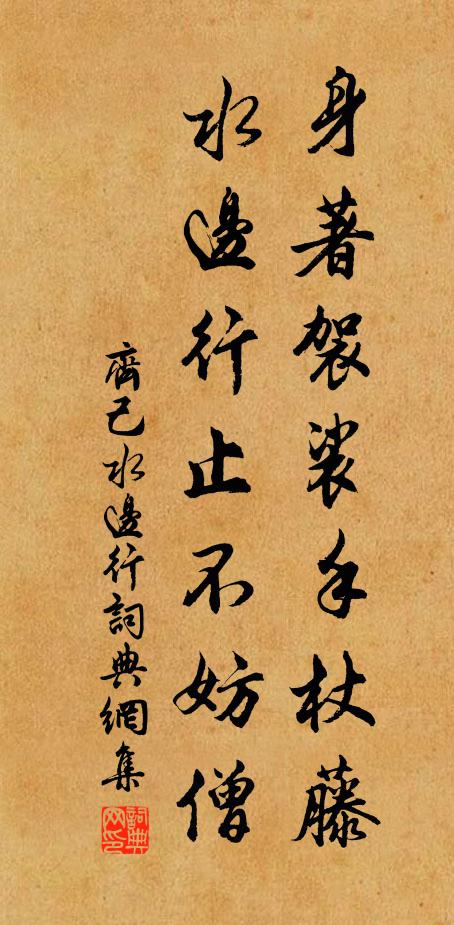 身著袈裟手杖藤
水邊行止不妨僧
齊己水邊行詞典網集
詞典網印